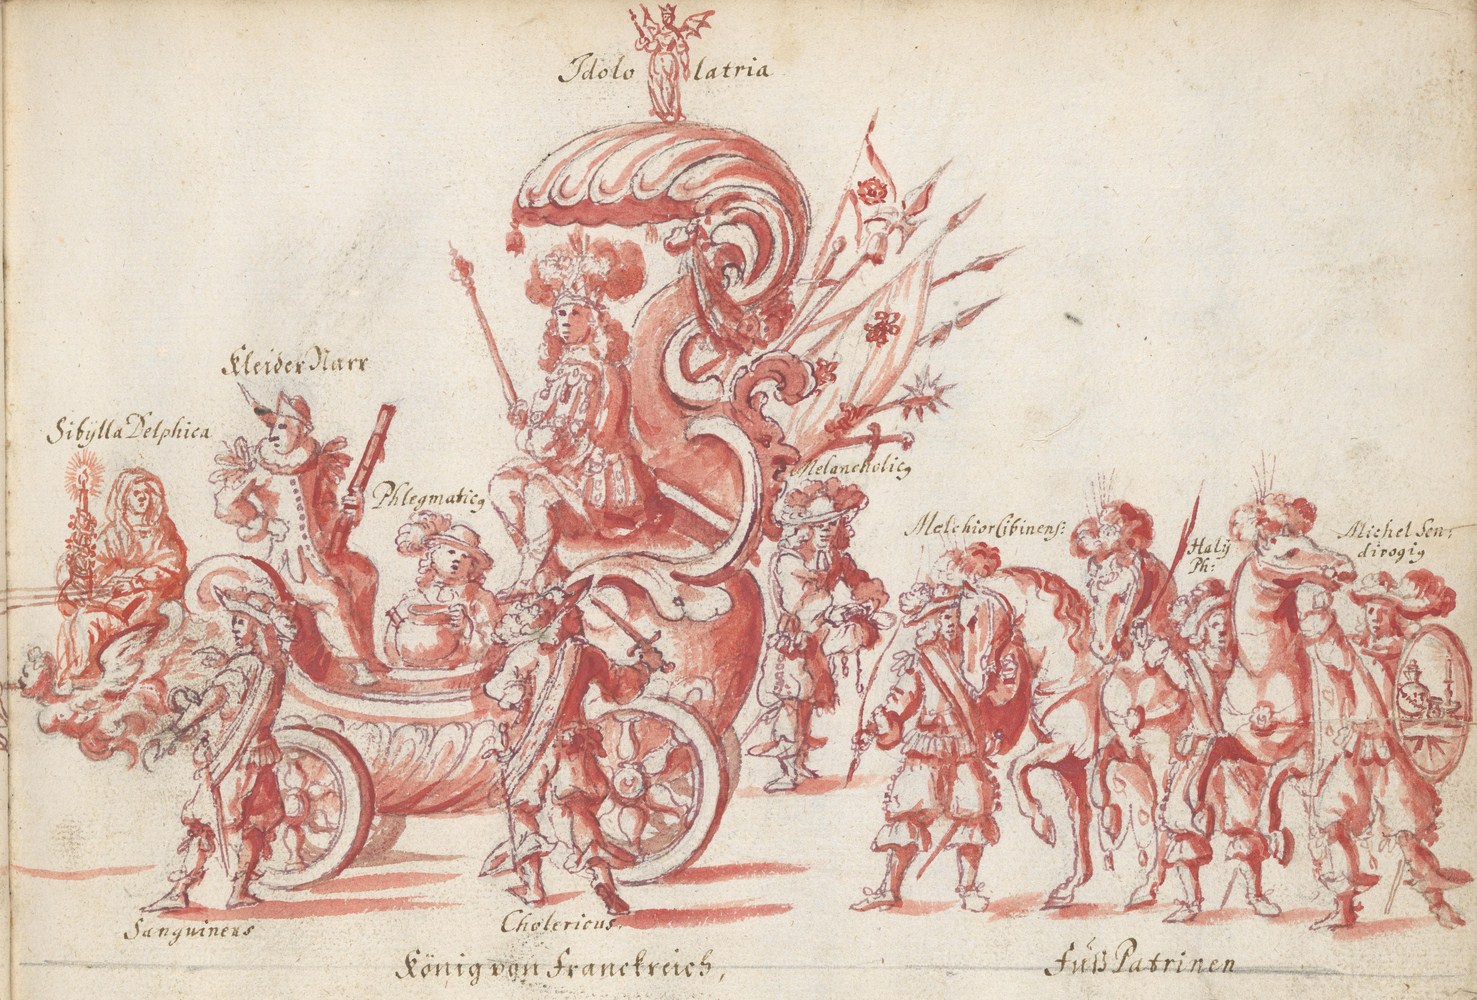 Idolo latria
Kleider Narr
Sibÿlla Delphica
Phlegmaticꝰ
Melancholicꝰ
Melchior Cibinens:
Halÿ
Ph:
Michel Sen-
dirogiꝰ
Sanguineus
Cholericus.
König von Franckreich,
Fúß Patrinen